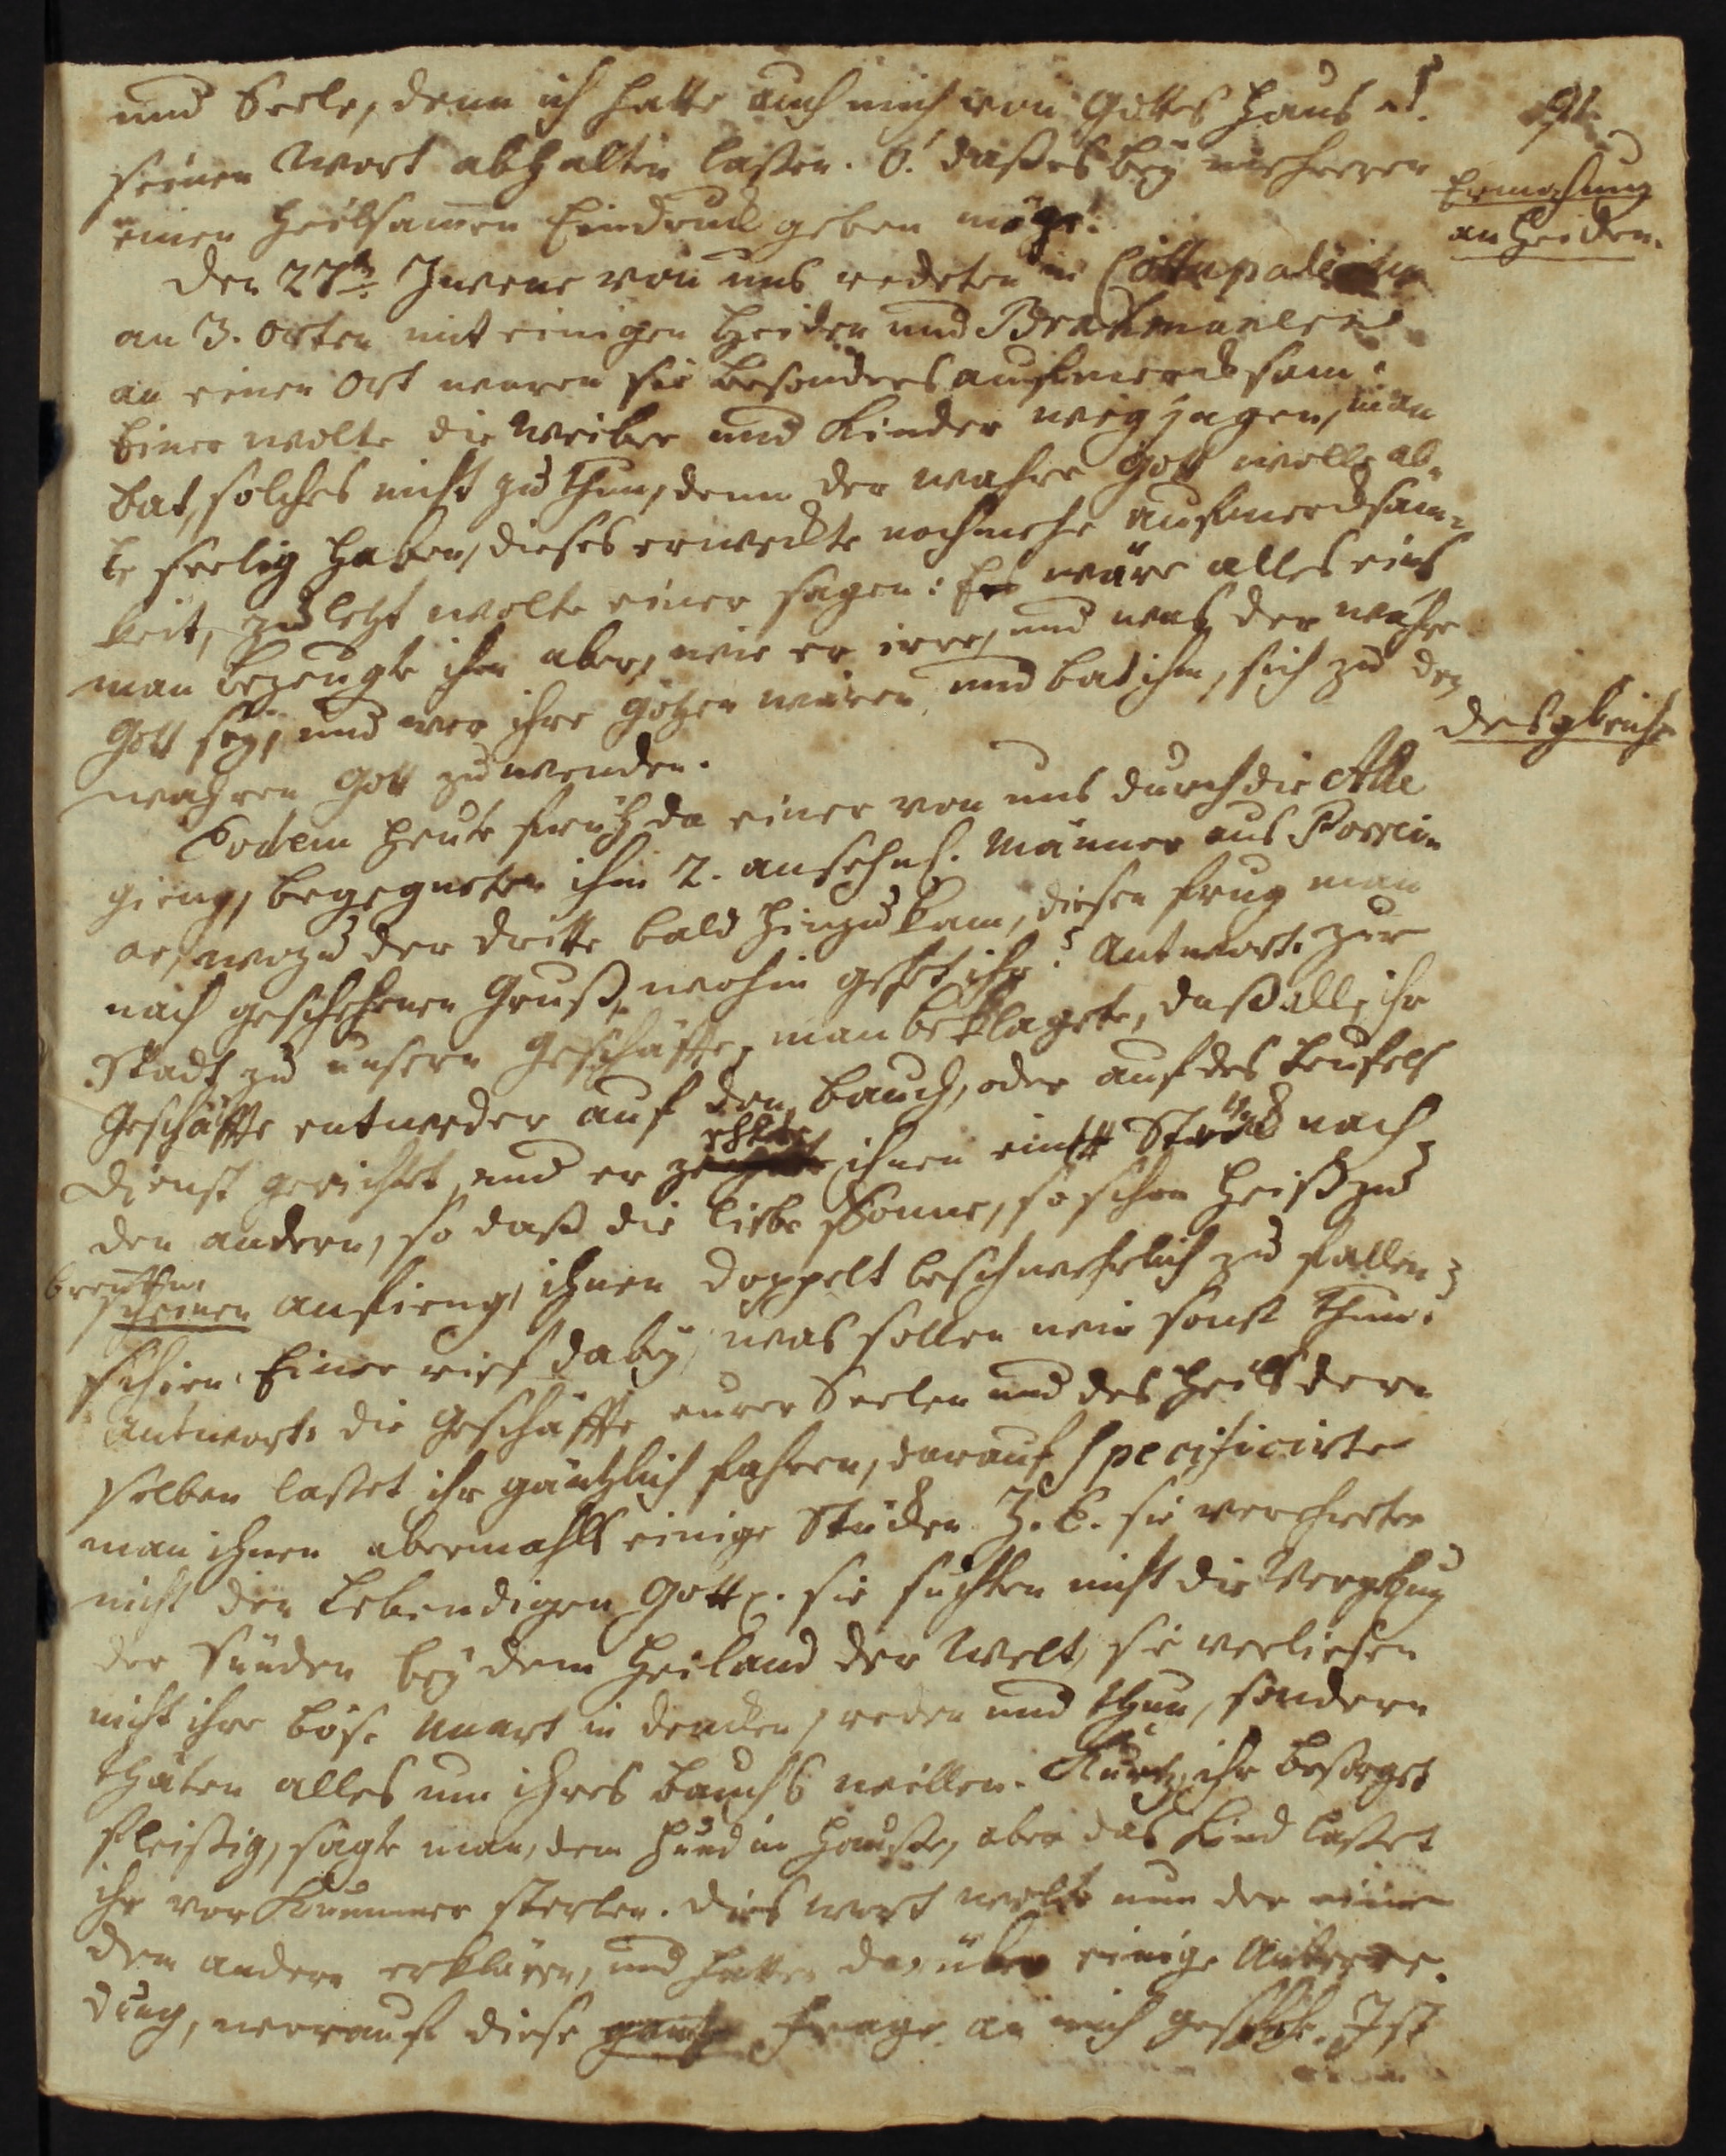 und Seele, denn ich hatte auch mich von Gottes Haus u.
seinen Wort abhalten laßen. O! daß es bey mehreren
einen heilsamen Eindruck geben möge!
Den 27ten Zweene von uns redeten in Cottupadi
an 3. Orten mit einigen Heiden und Brahmanen
an einen Ort waren sie besonders aufmercksam:
Einer wolte die Weiber und Kinder weg jagen, man
bat, solches nicht zu thun, denn der wahre Gott wolle al-
le seelig haben, dieses erweckte noch mehr aufmercksam-
keit, zu letzt wolte einer sagen: Es wäre alles eins
man bezeugte ihm aber, wie er irre, und was der wahre
Gott sey, und wer ihre Götzen wären, und bat ihn, sich zu den
wahren Gott zu wenden.
Eodem heute früh da einer von uns durch die Allee
gieng, begegneten ihm 2. ansehnl. Männer aus Porrei-
ar, wozu der dritte bald hinzu kam, diesen frug man
nach geschehenen Gruß, wohin gehet ihr? Antwort. zur
Stadt zu unsern Geschäffte, man beklagete, daß alle ihr
Geschäffte entweder auf den Bauch, oder auf des Teufels
Dienst gerichtet, und er ihnen ein Stück nach
den andern, so daß die liebe Sonne, so schon heiß zu
brennen
scheinen anfieng, ihnen doppelt beschwehrlich zu fallen
schien. Einer rief dabey, was sollen wir sonst thun?
Antwort. die Geschäffte eurer Seelen und des Heils der-
selben laßet ihr gäntzlich fahren, darauf specificirte
man ihnen abermahls einige Stücken Z. E. sie verehreten
nicht den Lebendigen Gott, sie suchten nicht die Vergebung
der Sünden bey dem Heiland der Welt, sie verliesen
nicht ihre böse Unart in dencken, reden und thun, sondern
thäten alles um ihres Bauchs willen. Kurtz, ihr besorget
fleißig, sagte man, den Hund im Hauße, aber das Kind laßet
ihr vor Kummer sterben. Dies wort wolte nun der eine
dem andern erklären, und hatten darüber einige Unterre-
dung, worauf diese gantze Frage an mich geschahe. Ist
Ermahnung
an Heiden.
desgleichen